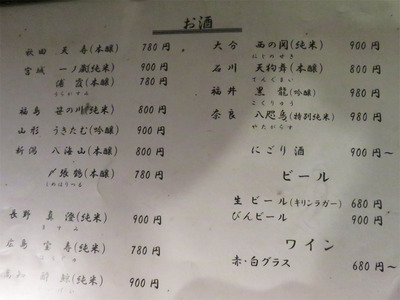 お酒
秋田 天寿(本醸) 780円
宮城 一ノ蔵(純米) 900円
浦霞(本醸) 780円
うらかすみ
福島 笹の川(純米) 800円
山形 うきたむ(吟醸) 900円
新潟 八海山(本醸) 800円
〆張鶴(本醸) 780円
しめはりつる
長野 真澄(純米) 900円
ますみ
広島 宝寿(純米) 780円
高知 酔鯨(純米) 900円
大分 西の関(純米) 900円
にしのせき
石川 天狗舞(本醸) 800円
てんぐまい
福井 黒龍(吟醸) 980円
こくりゅう
奈良 八咫烏(特別純米) 980円
やたがらす
にごり酒 900円〜
ビール
生ビール(キリンラガー) 680円
びんビール 900円
ワイン
赤・白グラス 680円〜